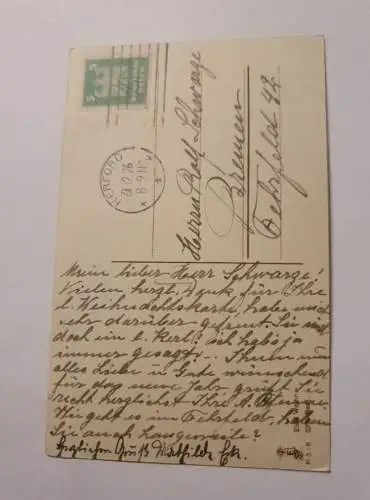 5
HERFORD 1
8-9 N
Herrn Rolf Schwarze
Bremen
Fehrfeld 42
Mein lieber Herr Schwarze!
Vielen herzl. Dank für Ihre
l. Weihnachtskarte, habe mich
sehr darüber gefreut. Sie sind
doch ein l. Kerl! ich habs ja
immer gesagt. Ihnen nun
alles Liebe u. Gute wünschend
für das neue Jahr grüßt Sie
recht herzlichst Ihre A.
Wie geht es im Fehrfeld, haben
Sie auch Langeweile?
Herzlichen Gruß Mathilde Eck.